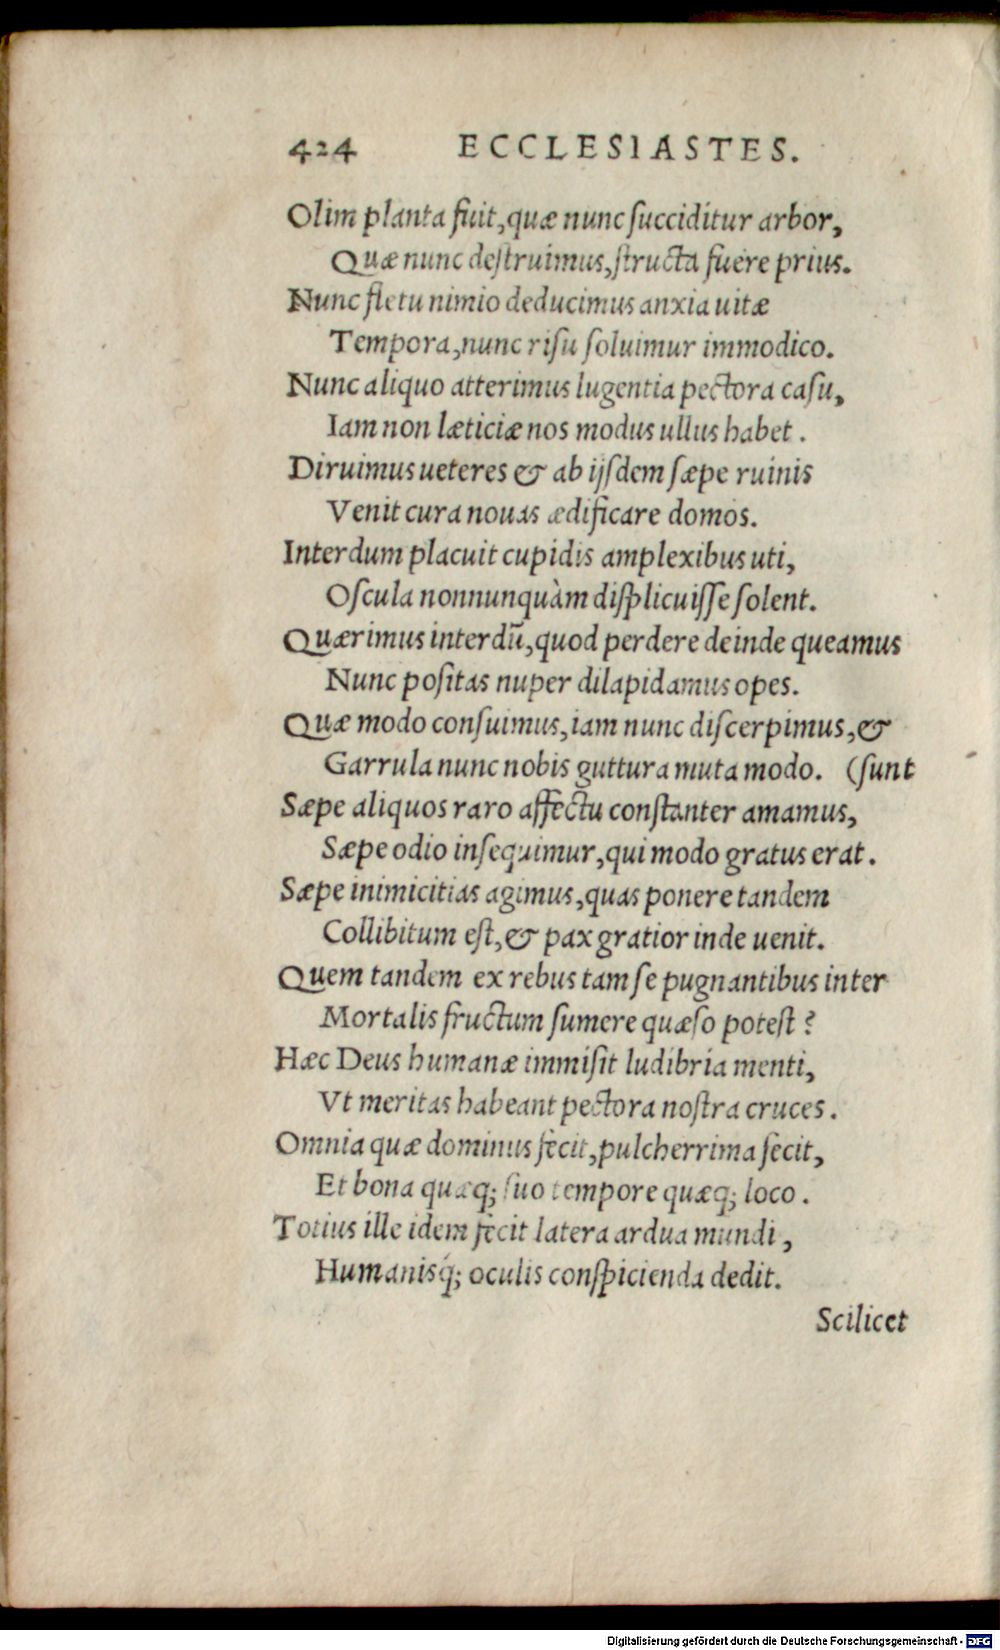 424 ECCLESIASTES.
Olim planta fuit, quæ nunc ſucciditur arbor,
Quæ nunc deſtruimus, ſtructa fuere prius.
Nunc fletu nimio deducimus anxia uitæ
Tempora, nunc riſu ſoluimur immodico.
Nunc aliquo atterimus lugentia pectora caſu,
Iam non læticiæ nos modus ullus habet.
Diruimus ueteres & ab ijſdem ſæpe ruinis
Venit cura nouas ædificare domos.
Interdum placuit cupidis amplexibus uti,
Oſcula nonnunquàm diſplicuiſſe ſolent.
Quærimus interdū, quod perdere deinde queamus
Nunc poſitas nuper dilapidamus opes.
Quæ modo conſuimus, iam nunc diſcerpimus, &
Garrula nunc nobis guttura muta modo. (ſunt
Sæpe aliquos raro affectu conſtanter amamus,
Sæpe odio inſequimur, qui modo gratus erat.
Sæpe inimicitias agimus, quas ponere tandem
Collibitum eſt, & pax gratior inde uenit.
Quem tandem ex rebus tam ſe pugnantibus inter
Mortalis fructum ſumere quæſo poteſt?
Hæc Deus humanæ immiſit ludibria menti,
Vt meritas habeant pectora noſtra cruces.
Omnia quæ dominus fecit, pulcherrima fecit,
Et bona quæq; ſuo tempore quæq; loco.
Totius ille idem fecit latera ardua mundi,
Humanisq́; oculis conſpicienda dedit.
Scilicet
Digitalisierung gefördert durch die Deutsche Forschungsgemeinschaft - DFG